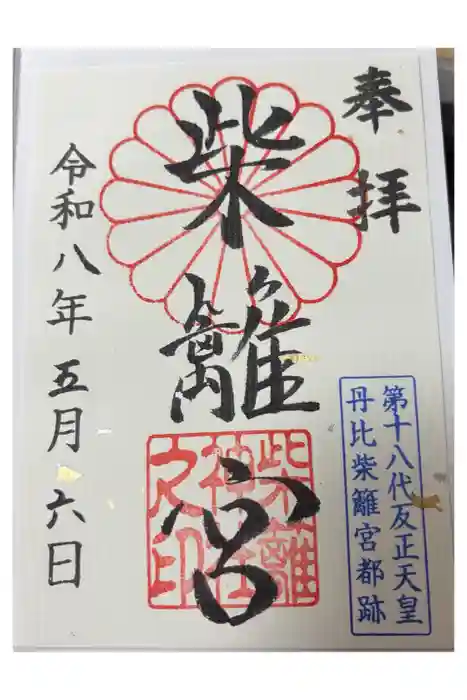 奉拝
柴籬宮
柴籬
神社
之印
第十八代反正天皇
丹比柴籬宮都跡
令和八年五月六日